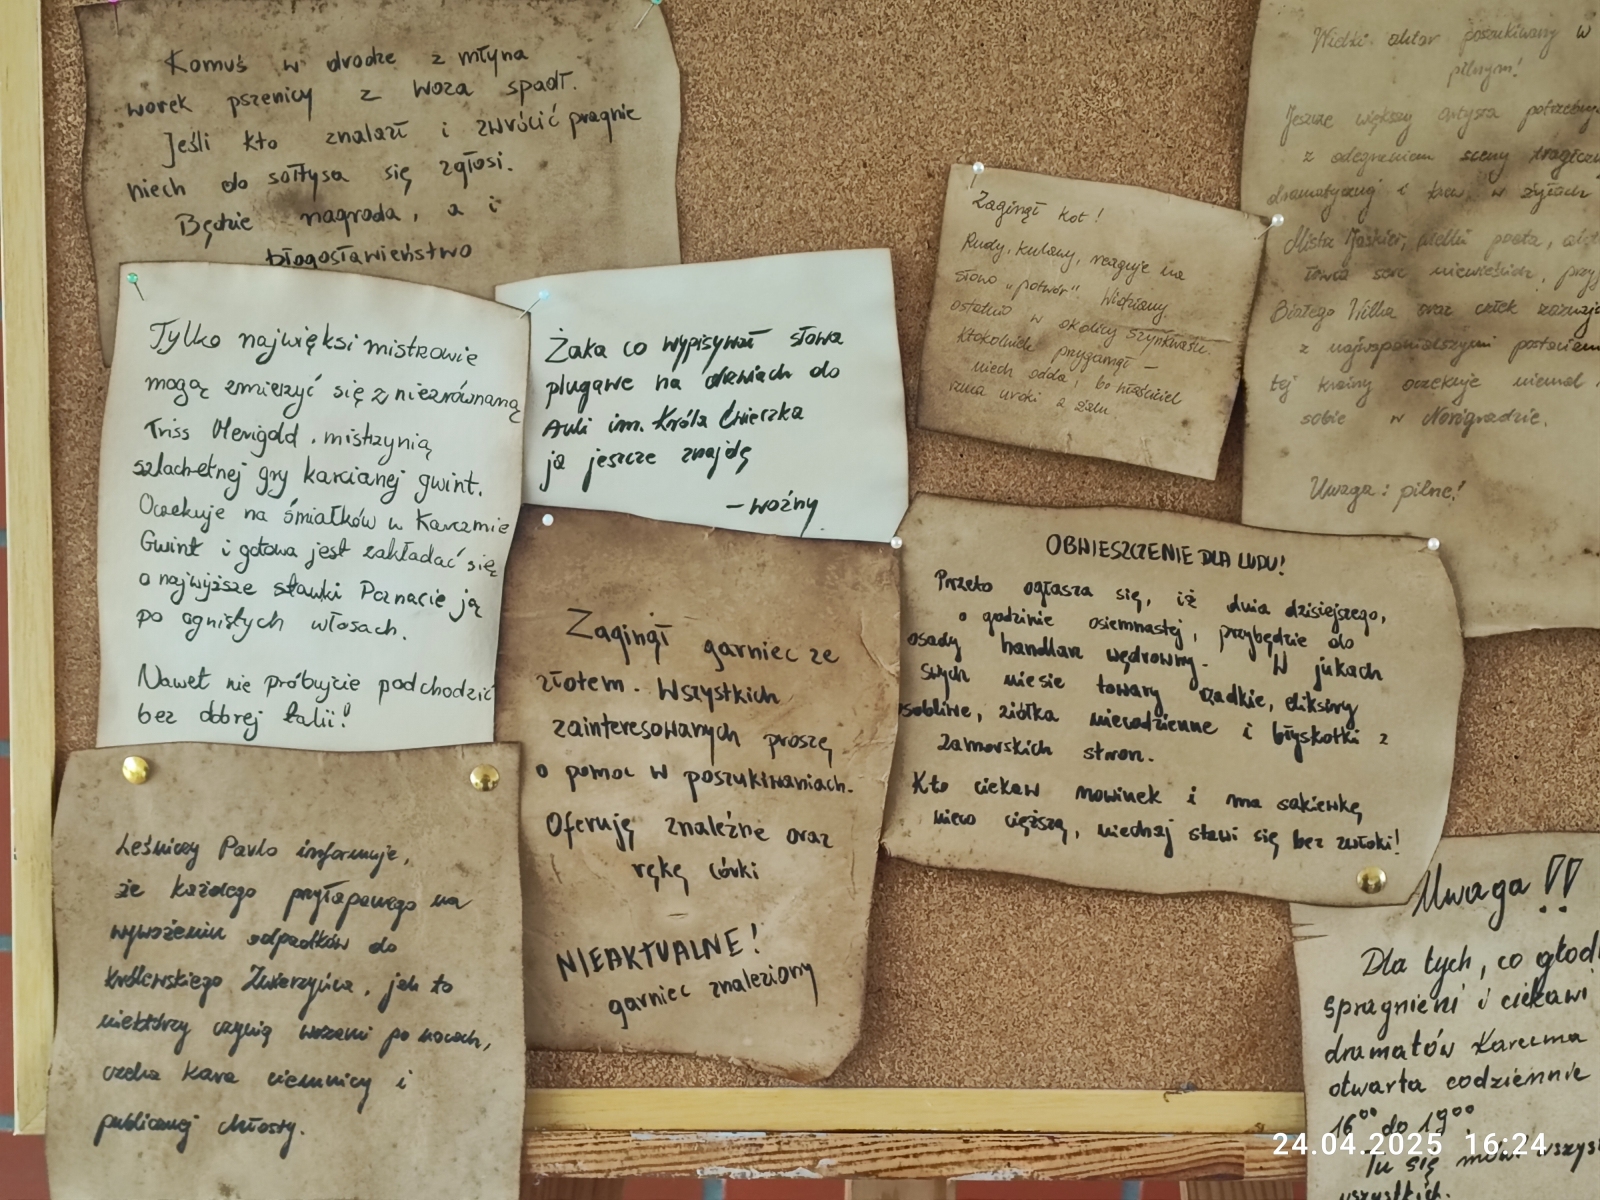 Komuś w drodze z młyna
worek pszenicy z woza spadł.
Jeśli kto znalazł i zwrócić pragnie
niech do sołtysa się zgłosi.
Będzie nagroda, a i
błogosławieństwo
Tylko najwięksi mistrzowie
mogą zmierzyć się z niezrównaną
Triss Merigold, mistrzynią
szlachetnej gry karcianej gwint.
Oczekuje na śmiałków w Karczmie
Gwint i gotowa jest zakładać się
o najwyższe stawki Poznacie ją
po ognistych włosach.
Nawet nie próbujcie podchodzić
bez dobrej talii!
Żaka co wypisywał słowa
plugawe na drzwiach do
Auli im. Króla Ćwieczka
ja jeszcze znajdę
- woźny
Zaginął kot!
Rudy, kulawy, reaguje na
słowo "potwór". Widziany
ostatnio w okolicy szynkwasu.
Ktokolwiek przygarnął -
niech odda, bo właściciel
rzuca uroki z żalu
Wielki aktor poszukiwany w
pilnym!
Jeszcze większy artysta potrzebny
z odegraniem sceny tragiczn
dramatycznej i krew w żyłach
Mistrz Jaskier, wielki poeta,
łowca serc niewieścich, przy
Białego Wilka oraz człek
z najwspanialszymi postaciami
tej krainy oczekuje niemal
sobie w Novigradzie.
Uwaga: pilne!
Zaginął garniec ze
złotem. Wszystkich
zainteresowanych proszę
o pomoc w poszukiwaniach.
Oferuję znaleźne oraz
rękę córki
NIEAKTUALNE!
garniec znaleziony
OBWIESZCZENIE DLA LUDU!
Przeto ogłasza się, iż dnia dzisiejszego,
o godzinie osiemnastej, przybędzie do
osady handlarz wędrowny. W jukach
swych niesie towary rzadkie, eliksiry
osobliwe, ziółka niecodzienne i błyskotki z
zamorskich stron.
Kto ciekaw nowinek i ma sakiewkę
nieco cięższą, niechaj stawi się bez zwłoki!
Leśniczy Pavlo informuje,
że każdego przyłapanego na
wywożeniu odpadków do
Królewskiego Zwierzyńca, jak to
niektórzy czynią wozami po nocach,
czeka kara ciemnicy i
publicznej chłosty.
Uwaga!!
Dla tych, co głodn
spragnieni i ciekawi
dramatów Karczma
otwarta codziennie
16⁰⁰ do 19⁰⁰
Tu się mówi wszys
wszystkich.
24.04.2025 16:24